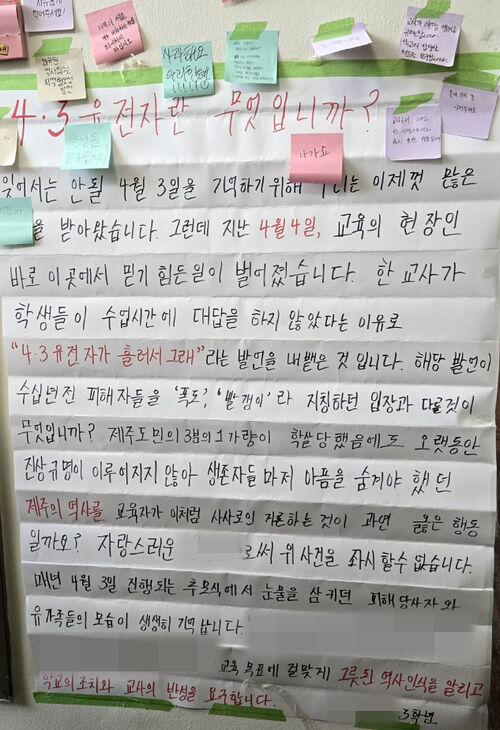 사과해요
4·3 유전자란 무엇입니까?
나가요
잊어서는 안될 4월 3일을 기억하기 위해 우리는 이제껏 많은
을 받아왔습니다. 그런데 지난 4월 4일, 교육의 현장인
바로 이곳에서 믿기 힘든일이 벌어졌습니다. 한 교사가
학생들이 수업시간에 대답을 하지 않았다는 이유로
"4·3 유전자가 흘러서 그래"라는 발언을 내뱉은 것 입니다. 해당 발언이
수십년전 피해자들을 '폭도', '빨갱이'라 지칭하던 입장과 다를것이
무엇입니까? 제주도민의 3분의 1 가량이 학살 당했음에도 오랫동안
진상규명이 이루어지지 않아 생존자들 마저 아픔을 숨겨야 했던
제주의 역사를 교육자가 이처럼 사사로이 거론하는 것이 과연 옳은 행동
일까요? 자랑스러운 로써 위 사건을 좌시 할수 없습니다.
매년 4월 3일 진행되는 추모식에서 눈물을 삼키던 피해당사자와
유가족들의 모습이 생생히 기억 납니다.
교육 목표에 걸맞게 그릇된 역사인식을 알리고
학교의 조치와 교사의 반성을 요구합니다.
3학년